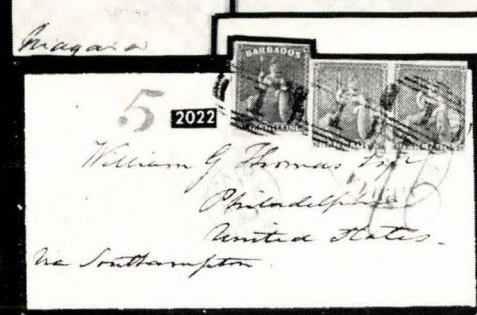 Niagara
BARBADOS
5
2022
William G Thomas Esqr
Philadelphia
United States.
Via Southampton.